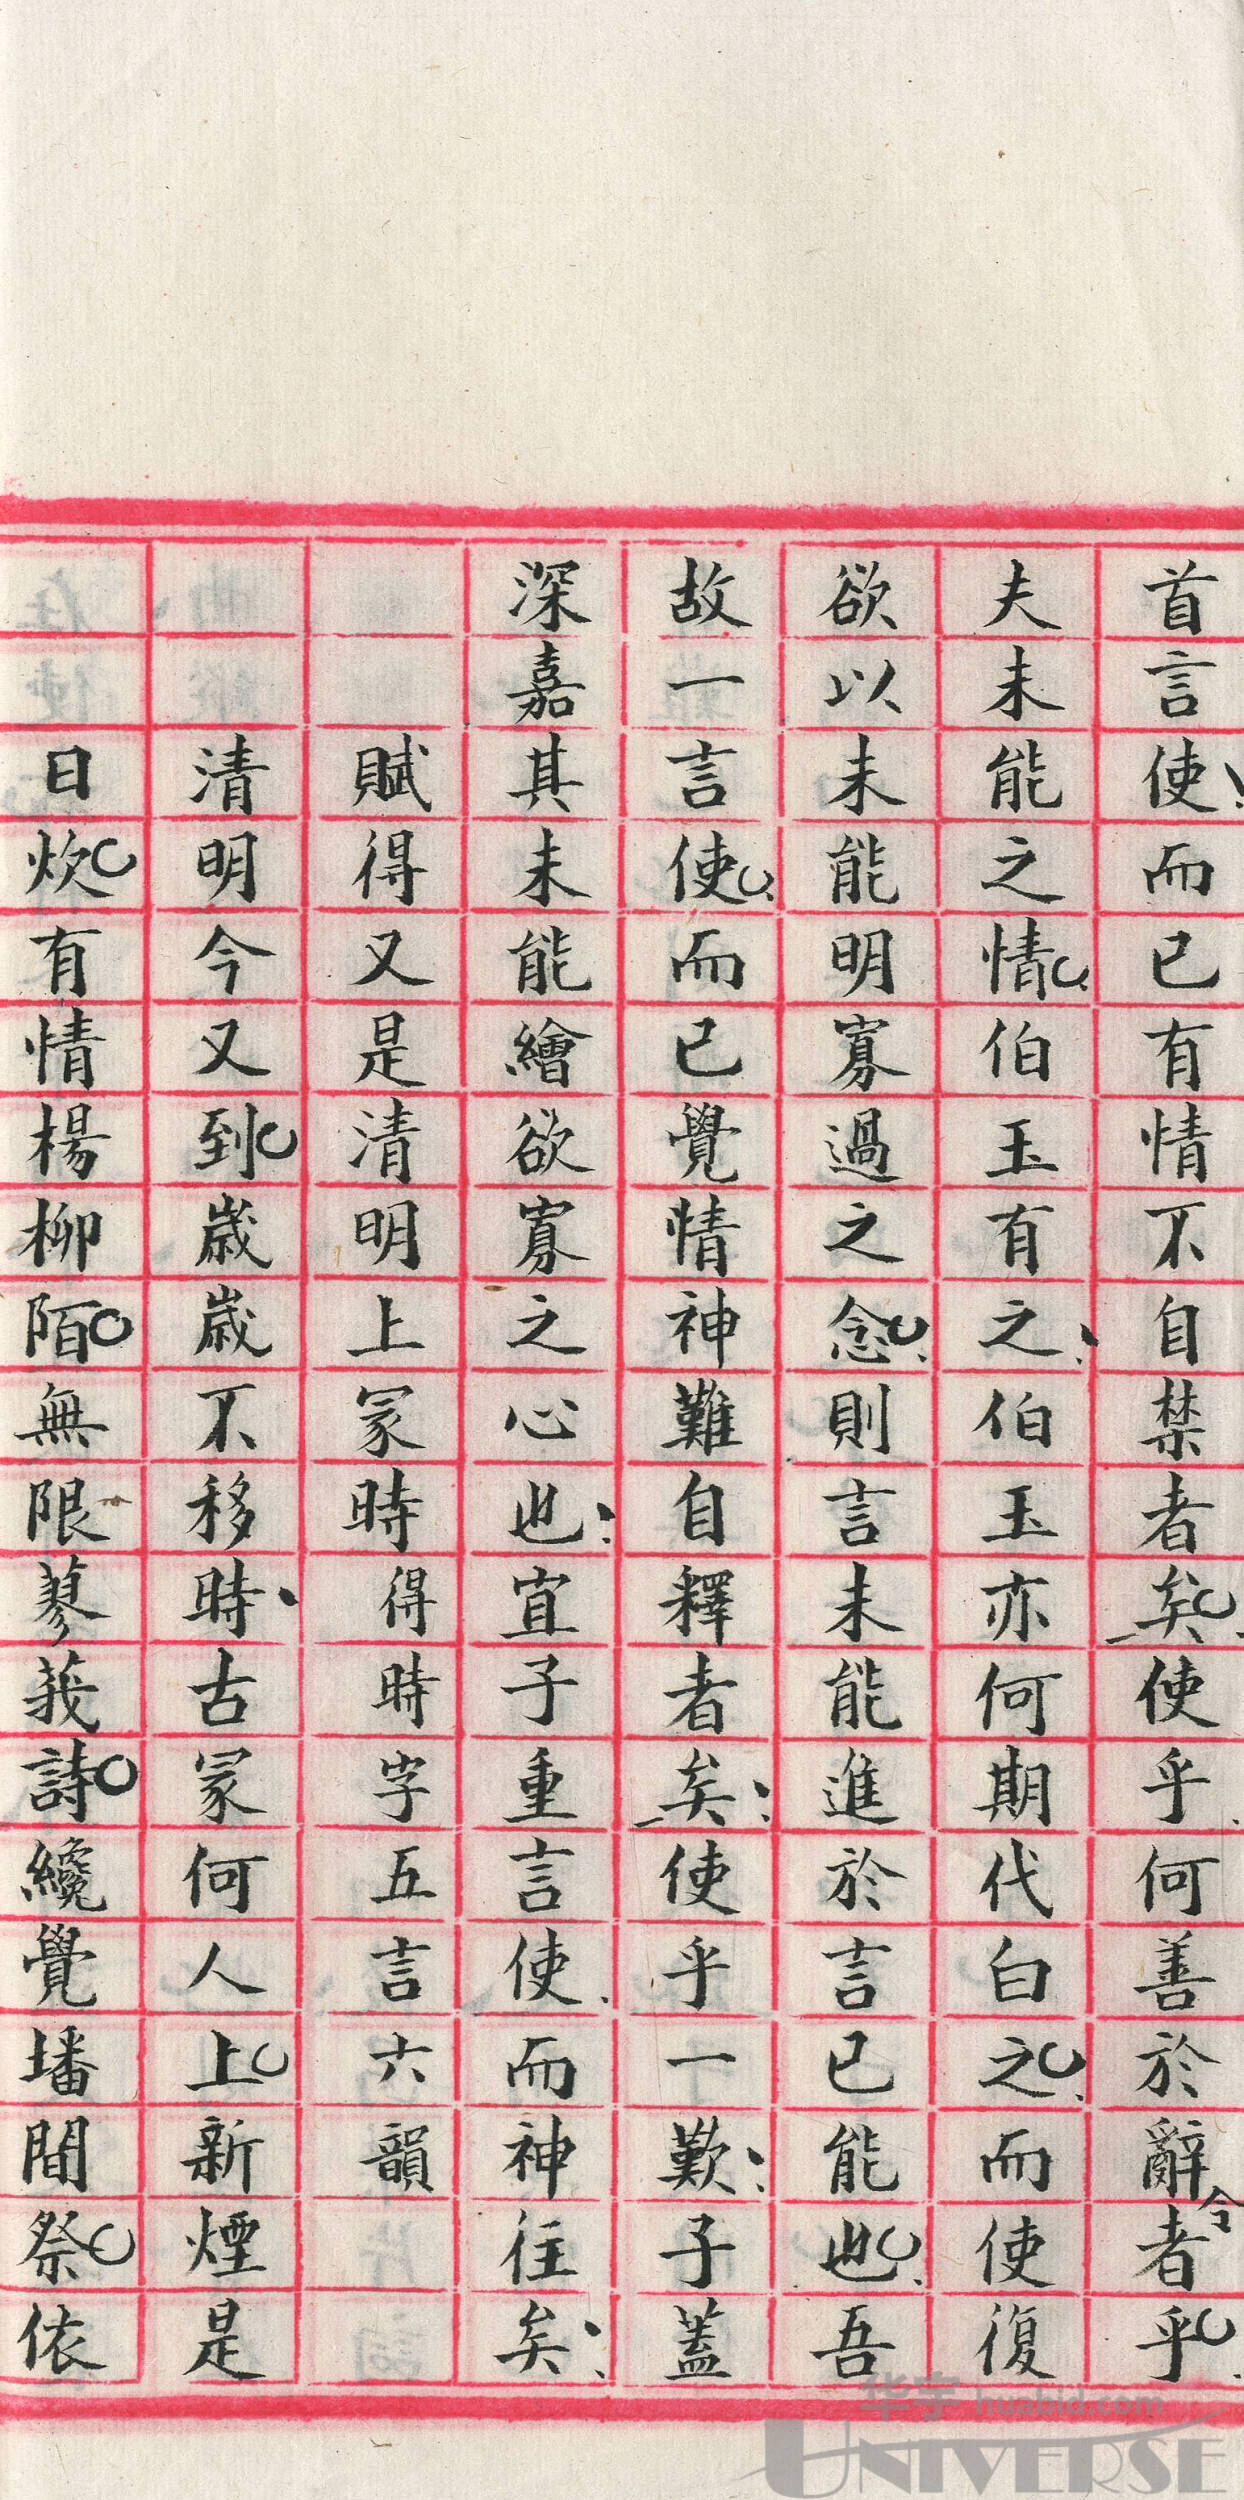 首言使而已有情不自禁者矣使乎何善於辭令者乎
夫未能之情伯玉有之伯玉亦何期代白之而使復
欲以未能明寡過之念則言未能進於言已能也吾
故一言使而已覺情神難自釋者矣使乎一歎子蓋
深嘉其未能繪欲寡之心也宜子重言使而神往矣
賦得又是清明上冢時得時字五言六韻
清明今又到歲歲不移時古冢何人上新煙是
日炊有情楊柳陌無限蓼莪詩纔覺墦間祭依
华宇 huabid.com
UNIVERSE